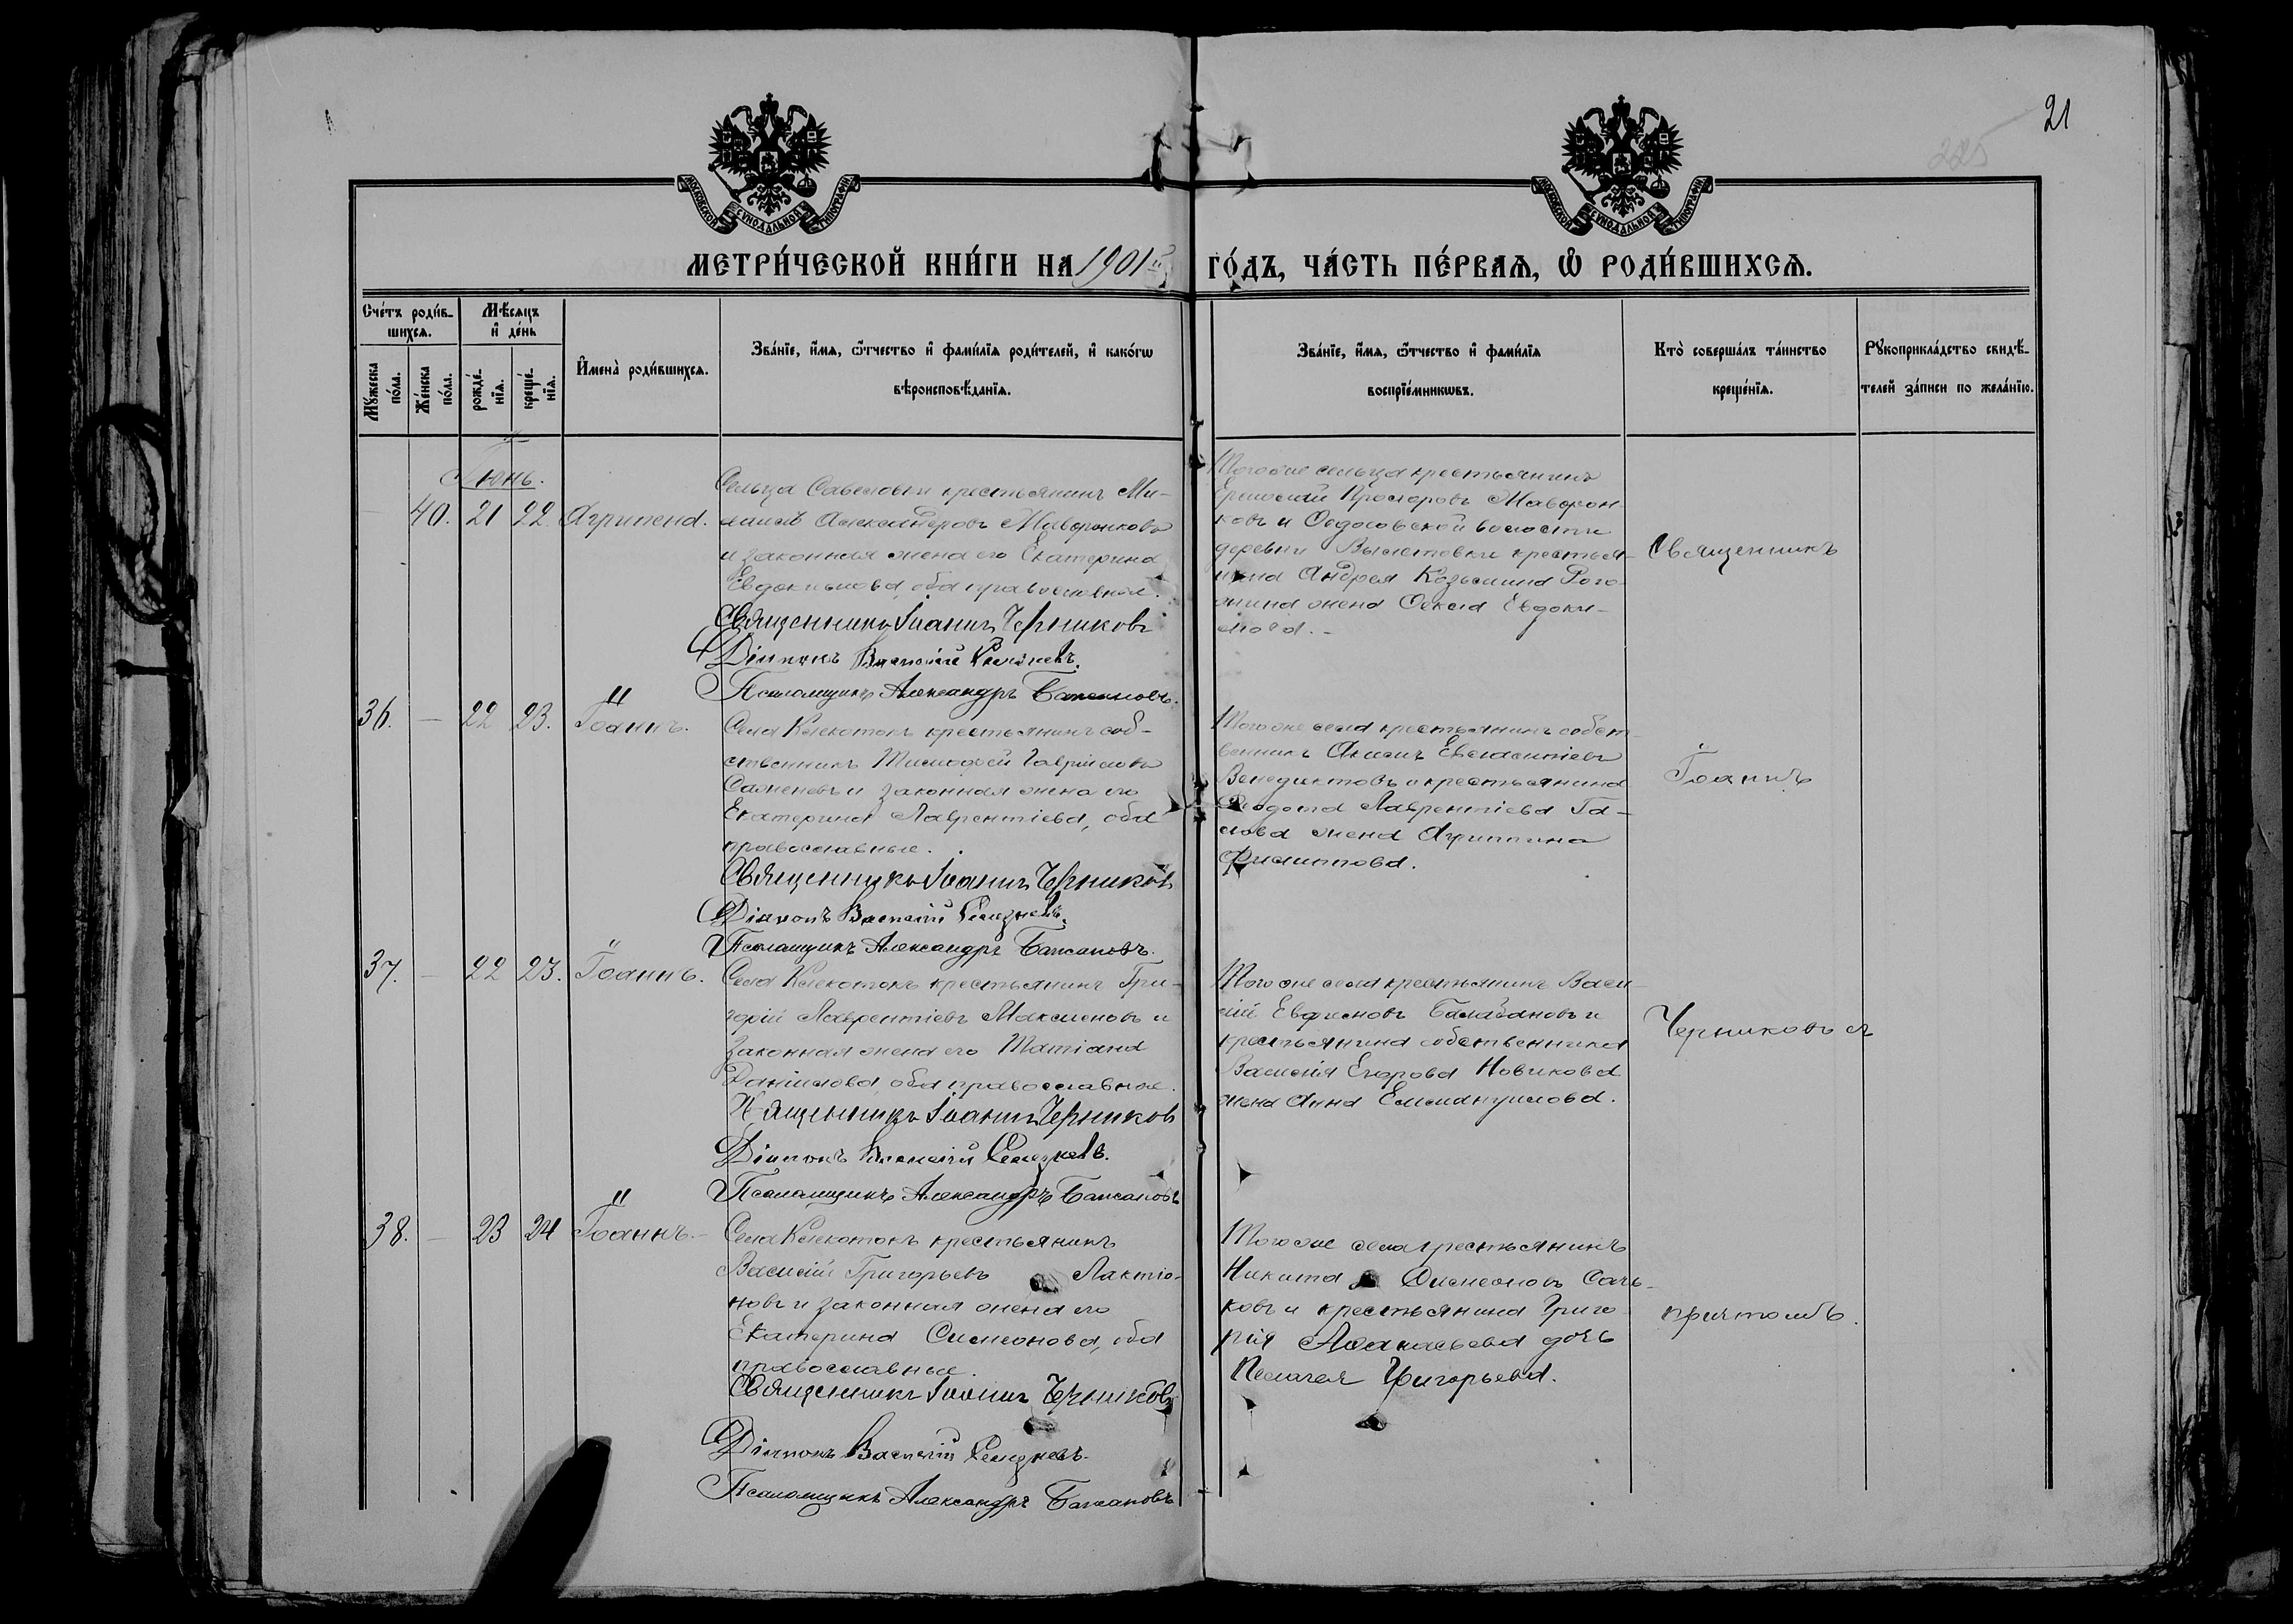 21
225
МОСКОВСКОЙ СУНОДАЛЬНОЙ ТИПОГРАФІИ
МОСКОВСКОЙ СУНОДАЛЬНОЙ ТИПОГРАФІИ
МЕТРИ́ЧЕСКОЙ КНИ́ГИ НА 1901й
ГО́ДЪ, ЧА́СТЬ ПЕ́РВАѦ, Ѽ РОДИ́ВШИХСѦ.
Сче́тъ роди́в-
шихсѧ.
Мѣ́сѧцъ
и҆ де́нь
Мꙋ́жеска
по́ла.
Же́нска
по́ла.
рожде́-
нїѧ.
креще́-
нїѧ.
И҆мена̀ роди́вшихсѧ.
Зва́нїе, и҆́мѧ, ѻ҆́тчество и҆ фами́лїѧ роди́телей, и҆ како́гѡ
вѣроисповѣ́данїѧ.
Зва́нїе, и҆́мѧ, ѻ҆́тчество и҆ фами́лїѧ
воспрїе́мникѡвъ.
Кто̀ соверша́лъ та́инство
креще́нїѧ.
Рꙋкоприкла́дство свидѣ́-
телей за́писи по жела́нїю.
Іюнь.
40. 21 22 Агрипена.
Сельца Савеловки крестьянинъ Ми-
хаилъ Александровъ Мавронковъ
и законная жена его Екатерина
Евдокимова, оба православные.
Священникъ Іоаннъ Черниковъ
Діаконъ Василій Селезневъ.
Псаломщикъ Александръ
Тогоже сельца крестьянинъ
Прохоровъ Маврон-
ковъ и волости
деревни крестья-
нина Андрея Козьмина Рого-
жина жена Ѳекла Евдоки-
мова.
Священникъ
36. — 22 23. Іоаннъ.
Села Клекотокъ крестьянинъ соб-
ственникъ Тимоѳей Гавріиловъ
и законная жена его
Екатерина Лаврентіева, оба
православные.
Священникъ Іоаннъ Черниковъ
Діаконъ Василій Селезневъ.
Псаломщикъ Александръ
Тогоже села крестьянинъ собст-
венникъ
Венедиктовъ и крестьянина
Ѳеодота Лаврентіева Га-
лова жена Агрипина
Филиппова.
Іоаннъ
37. — 22 23. Іоаннъ.
Села Клекотокъ крестьянинъ Гри-
горій Лаврентіевъ и
законная жена его Татіана
Даніилова, оба православные.
Священникъ Іоаннъ Черниковъ
Діаконъ Василій Селезневъ.
Псаломщикъ Александръ
Тогоже села крестьянинъ Васи-
лій и
крестьянина собственника
Василія Егорова Новикова
жена Анна Еммануилова.
Черниковъ съ
38. — 23 24 Іоаннъ.
Села Клекотокъ крестьянинъ
Василій Григорьевъ Лактіо-
новъ и законная жена его
Екатерина Симеонова, оба
православные.
Священникъ Іоаннъ Черниковъ
Діаконъ Василій Селезневъ.
Псаломщикъ Александръ
Тогоже села крестьянинъ
Никита Симеоновъ Сачь-
ковъ и крестьянина Григо-
рія Аѳанасьева дочь
Пелагея Григорьева.
причтомъ.